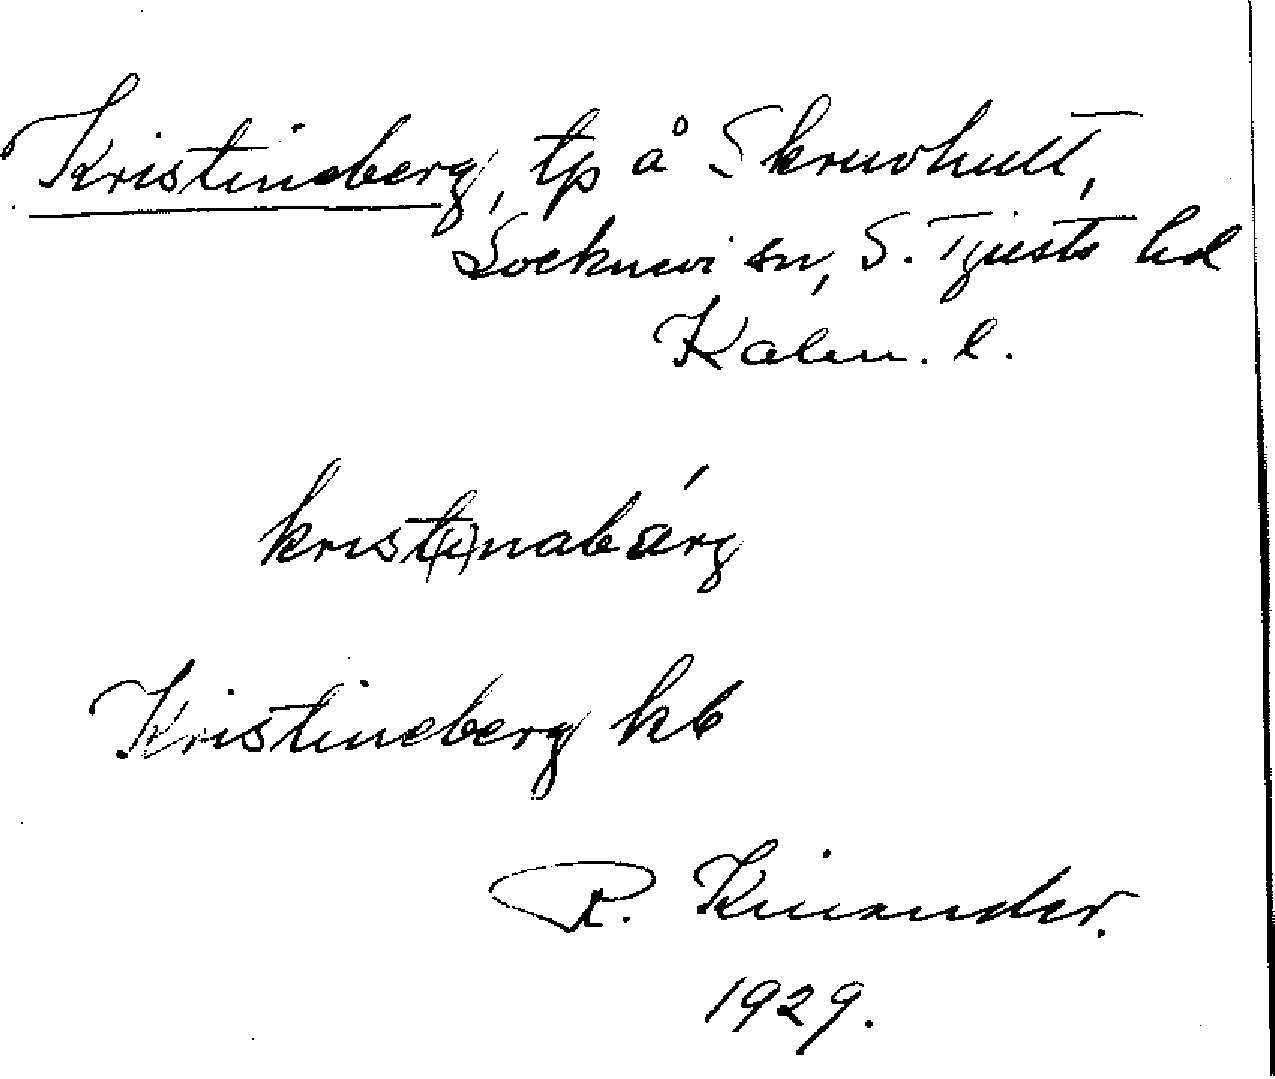 Kristineberg, tp å Skruvhult,
Locknevi sn, S. Tjusts hd
Kalm. l.
krist(i)nabärg
Kristineberg kb
R. Kinander.
1929.